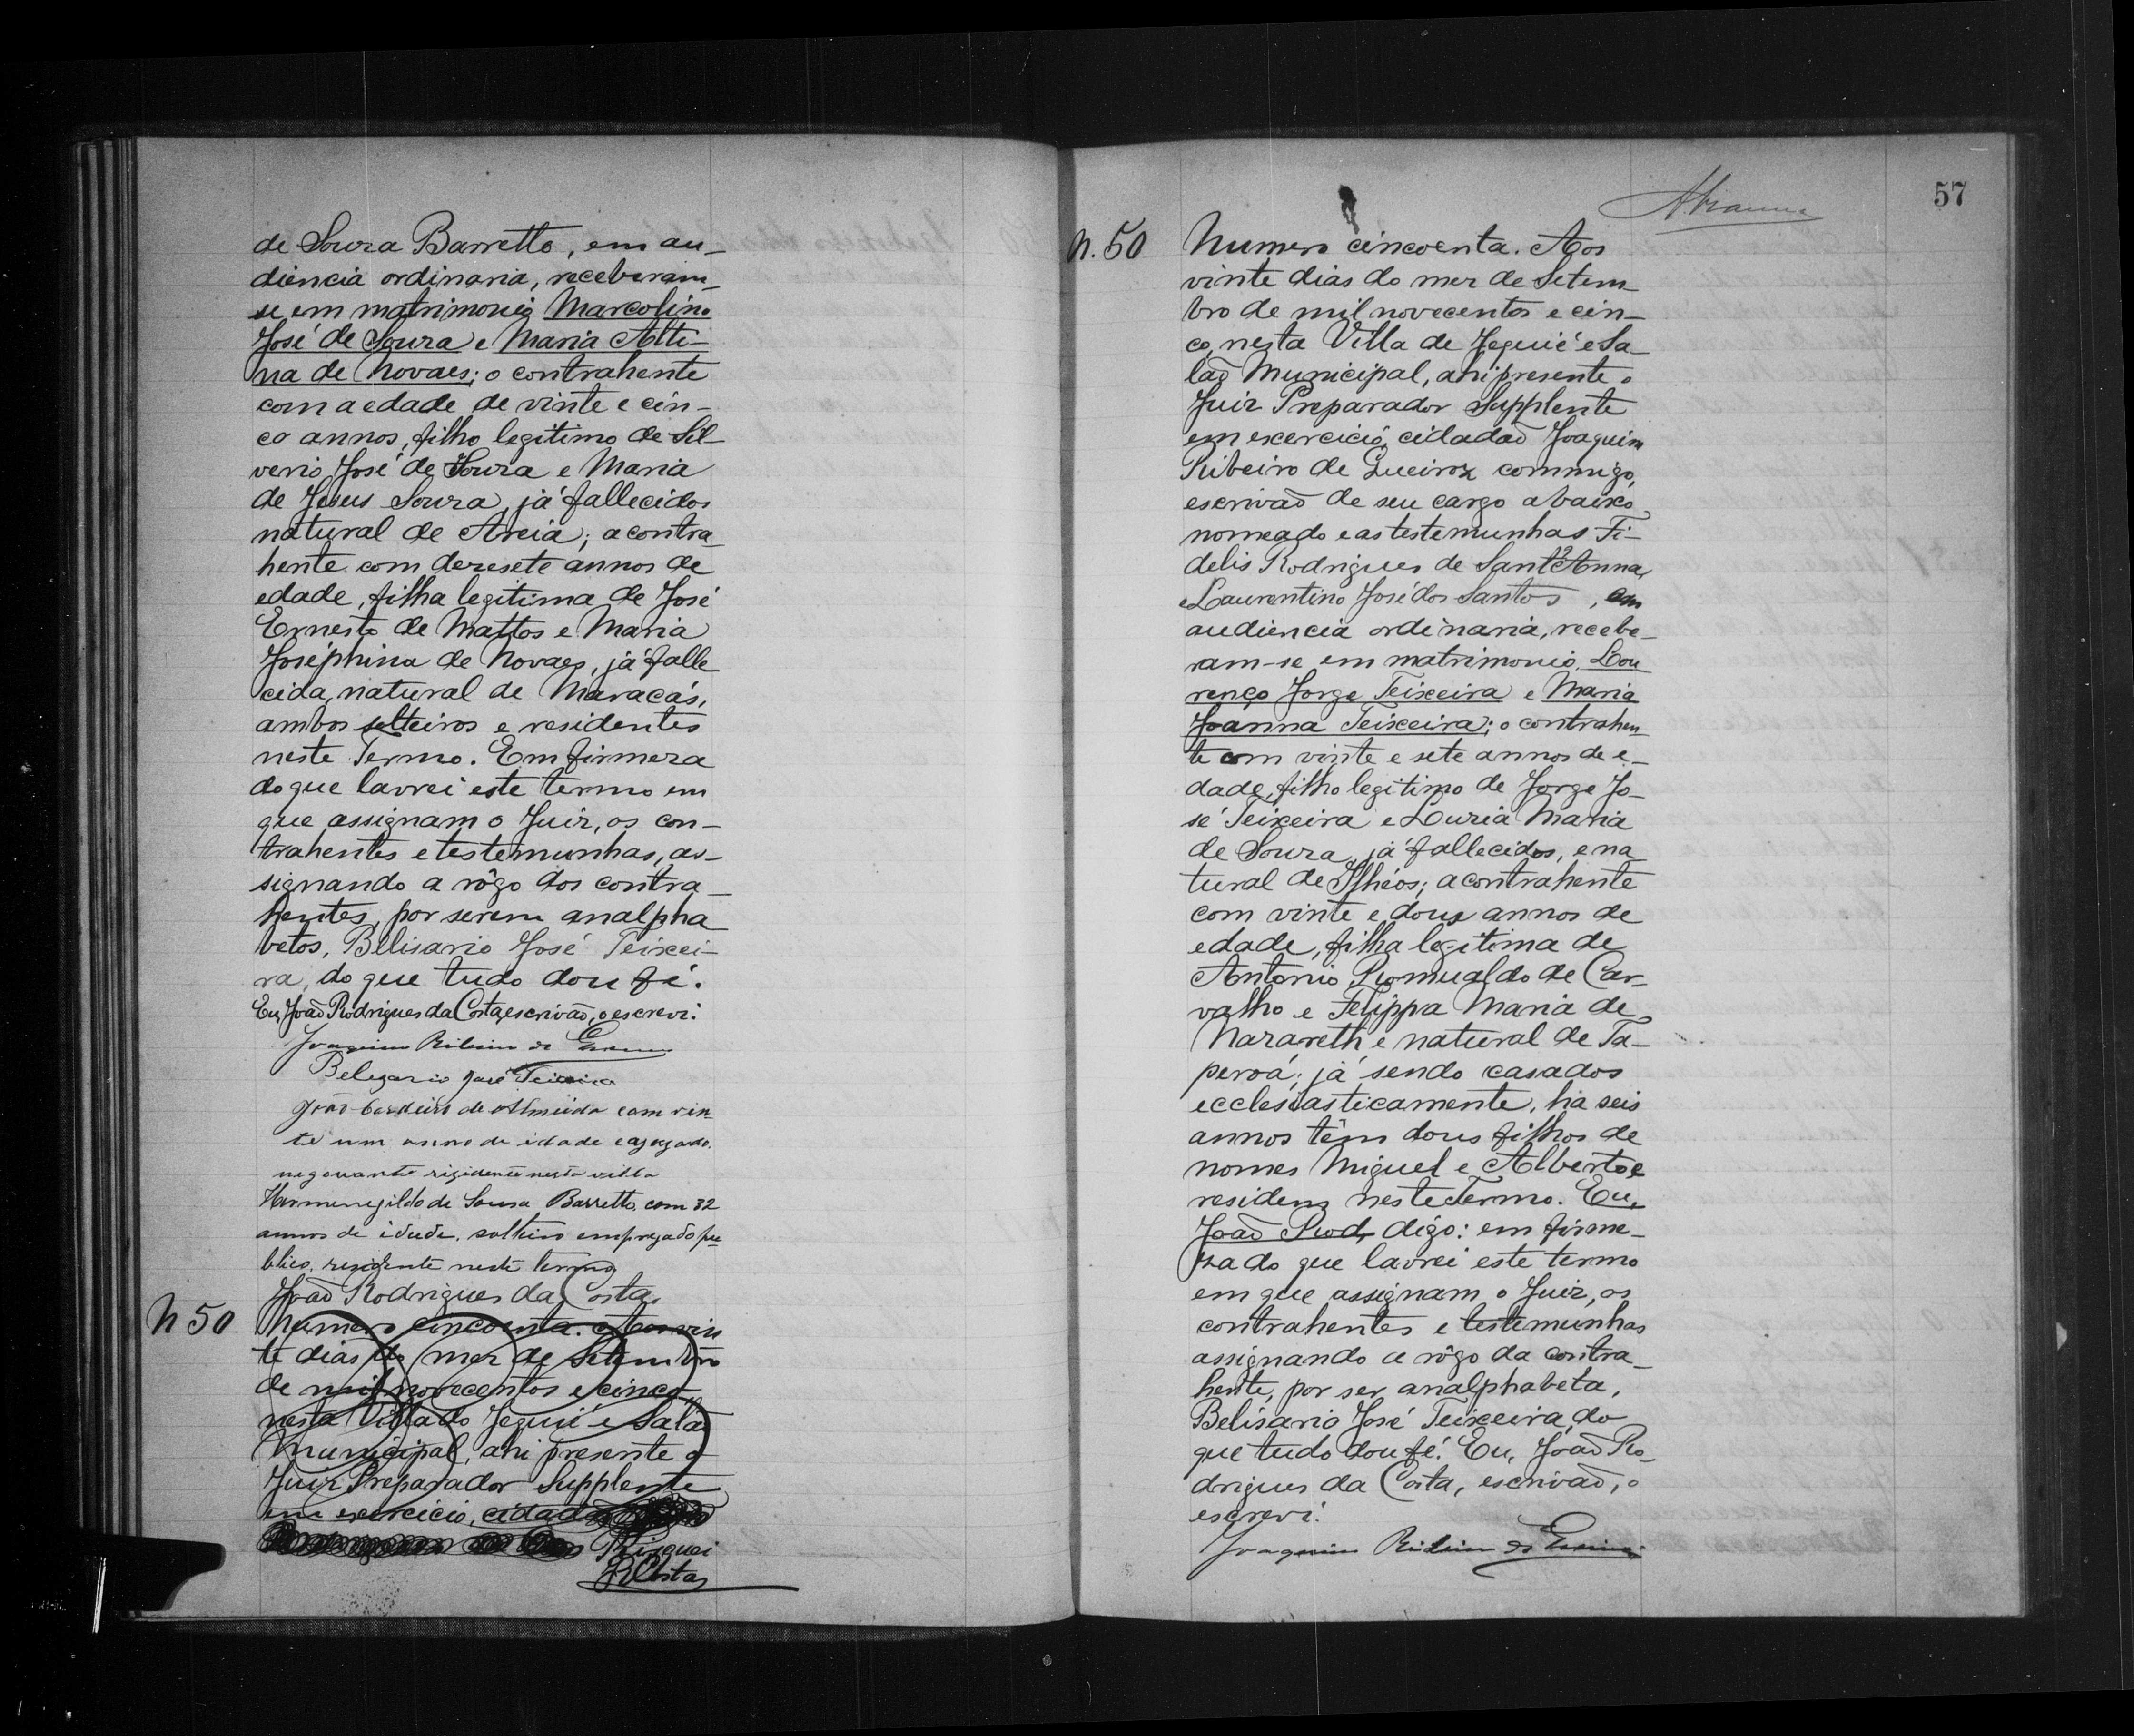 de Souza Barretto, em au-
diencia ordinaria, receberam-
se em matrimonio Marcolino
José de Souza e Maria Alti-
na de Novaes; o contrahente
com a edade de vinte e cin-
co annos, filho legitimo de Sil
verio José de Souza e Maria
de Jesus Souza, já fallecidos
natural de Areia; a contra-
hente com dezesete annos de
edade, filha legitima de José
Ernesto de Mattos e Maria
Joséphina de Novaes, já falle
cida, natural de Maracás,
ambos solteiros e residentes
neste Termo. Em firmeza
do que lavrei este termo em
que assignam o Juiz, os con-
trahentes e testemunhas, as-
signando a rôgo dos contra-
hentes, por serem analpha
betos, Belisario José Teixei-
ra, do que tudo dou fé.
Eu, João Rodrigues da Costa, escrivão, o escrevi.
Joaquim Ribeiro de Queiroz
Belizario José Teixeira
João Cordeiro de Almeida com vin-
te um anno de idade
negociante rizidente nesta villa
Hermenegildo de Sousa Barretto, com 32
annos de idade, solteiro empregado pu
blico, rezidente neste termo
João Rodrigues da Costa
N 50
Numero cincoenta. Aos vin
te dias do mez de Setembro
de mil novecentos e cinco
nesta Villa do Jequié e Salão
Municipal, ahi presente o
Juiz Preparador Supplente
em exercicio, cidadão
Risquei
RCosta
57
N. 50
Numero cincoenta. Aos
vinte dias do mez de Setem-
bro de mil novecentos e cin-
co, nesta Villa de Jequié e Sa-
lão Municipal, ahi presente o
Juiz Preparador Supplente
em exercicio, cidadão Joaquim
Ribeiro de Queiroz commigo,
escrivão de seu cargo abaixo
nomeado e as testemunhas Fi-
delis Rodrigues de Sant'Anna,
e Laurentino José dos Santos, em
audiencia ordinaria, recebe-
ram-se em matrimonio, Lou
renço Jorge Teixeira e Maria
Joanna Teixeira; o contrahen
te com vinte e sete annos de e-
dade, filho legitimo de Jorge Jo-
sé Teixeira e Luzia Maria
de Souza, já fallecidos, e na
tural de Ilhéos; a contrahente
com vinte e dous annos de
edade, filha legitima de
Antonio Romualdo de Car-
valho e Felippa Maria de
Nazareth e natural de Ta-
peroá; já sendo casados
ecclesiasticamente, ha seis
annos têm dous filhos de
nomes Miguel e Alberto e
residem neste Termo. Eu,
João Rod, digo: em firme-
za do que lavrei este termo
em que assignam o Juiz, os
contrahentes e testemunhas
assignando a rôgo da contra-
hente, por ser analphabeta,
Belisario José Teixeira, do
que tudo dou fé. Eu, João Ro-
drigues da Costa, escrivão, o
escrevi.
Joaquim Ribeiro de Queiroz